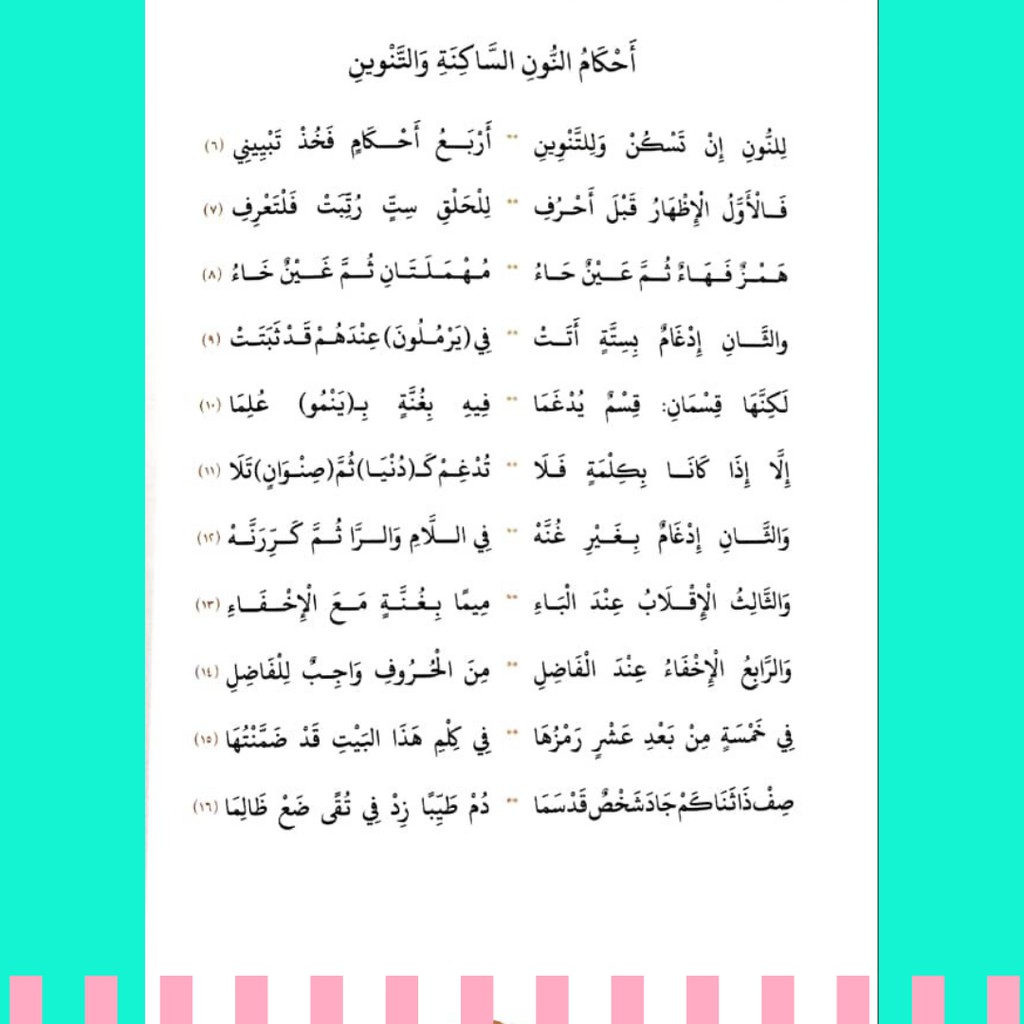 أَحْكَامُ النُّونِ السَّاكِنَةِ وَالتَّنْوينِ
لِلنُّونِ إِنْ تَسْكُنْ وَلِلتَّنْوِينِ ** أَرْبَـعُ أَحْـكَامٍ فَخُذْ تَبْيِينِي (٦)
فَـالْأَوَّلُ الْإِظْهَارُ قَبْلَ أَحْـرُفِ ** لِلْحَلْقِ سِتٍّ رُتِّبَتْ فَلْتَعْرِفِ (٧)
هَـمْـزٌ فَـهَـاءٌ ثُـمَّ عَـيْـنٌ حَـاءُ ** مُـهْـمَـلَـتَـانِ ثُـمَّ غَـيْـنٌ خَـاءُ (٨)
والثَّـانِ إِدْغَامٌ بِسِتَّةٍ أَتَـتْ ** فِي (يَرْمُلُونَ) عِنْدَهُمْ قَدْ ثَبَتَـتْ (٩)
لَكِنَّهَا قِسْمَانِ: قِسْمٌ يُدْغَمَا ** فِيهِ بِغُنَّةٍ بِـ(يَنْمُو) عُلِمَا (١٠)
إِلَّا إِذَا كَانَـا بِكِلْمَةٍ فَـلَا ** تُدْغِـمْ كَـ(دُنْيَـا) ثُمَّ (صِنْـوَانٍ) تَلَا (١١)
وَالثَّـانِ إِدْغَامٌ بِـغَـيْرِ غُنَّهْ ** فِي الـلَّامِ وَالـرَّا ثُـمَّ كَـرِّرَنَّـهْ (١٢)
وَالثَّالِثُ الْإِقْـلَابُ عِنْدَ الْبَـاءِ ** مِيمًا بِـغُـنَّـةٍ مَـعَ الْإِخْـفَـاءِ (١٣)
وَالرَّابِعُ الْإِخْفَاءُ عِنْدَ الْفَاضِلِ ** مِنَ الْحُـرُوفِ وَاجِـبٌ لِلْفَاضِلِ (١٤)
فِي خَمْسَةٍ مِنْ بَعْدِ عَشْرٍ رَمْزُهَا ** فِي كِلْمِ هَذَا البَيْتِ قَدْ ضَمَّنْتُهَا (١٥)
صِفْ ذَا ثَنَا كَمْ جَادَ شَخْصٌ قَدْ سَمَا ** دُمْ طَيِّبًا زِدْ فِي تُقًى ضَعْ ظَالِمَا (١٦)